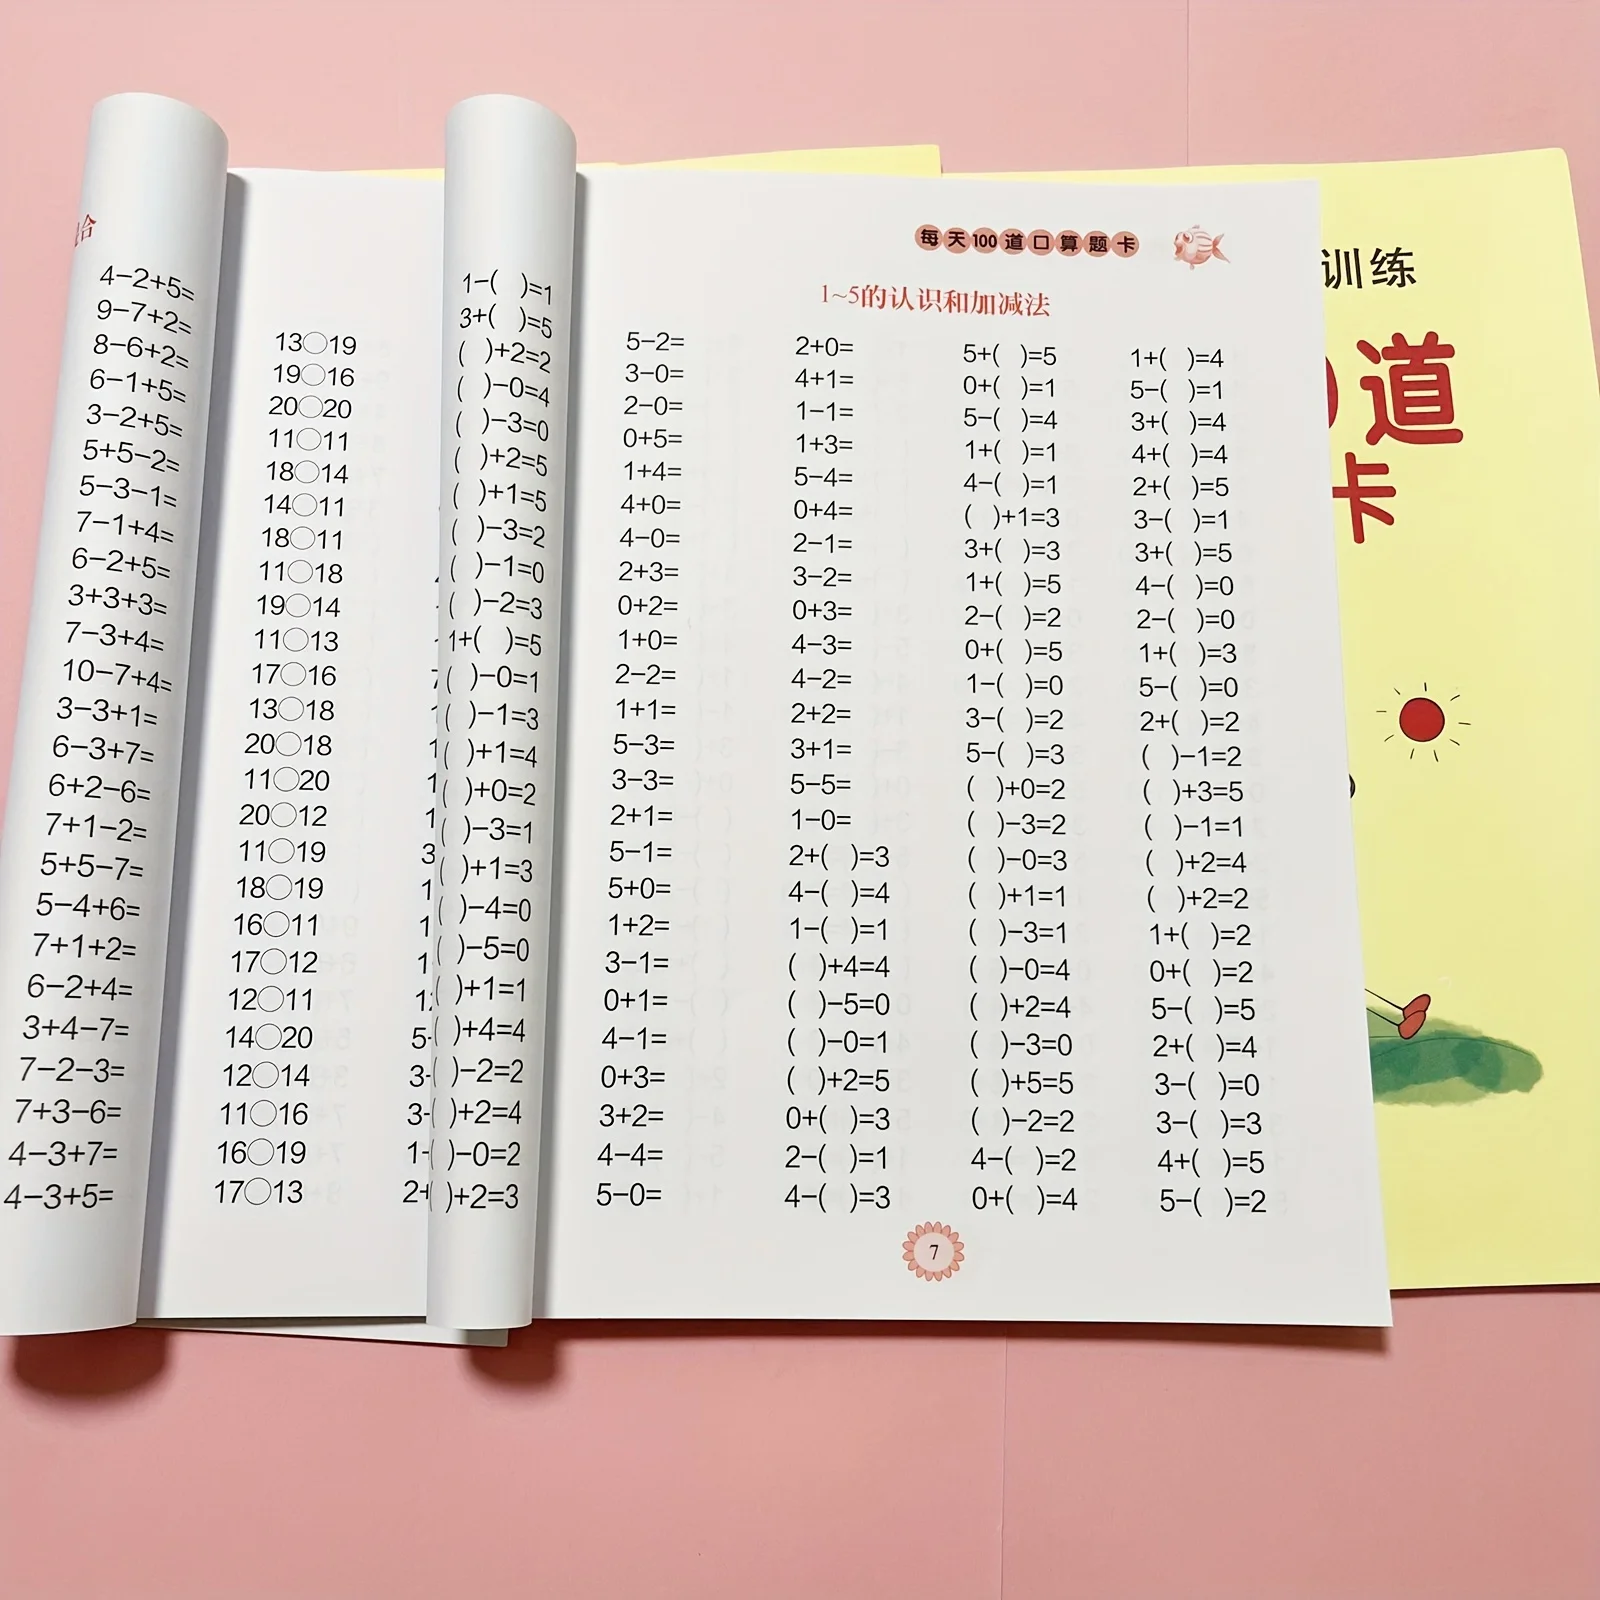 合
4−2+5=
9−7+2=
8−6+2=
6−1+5=
3−2+5=
5+5−2=
5−3−1=
7−1+4=
6−2+5=
3+3+3=
7−3+4=
10−7+4=
3−3+1=
6−3+7=
6+2−6=
7+1−2=
5+5−7=
5−4+6=
7+1+2=
6−2+4=
3+4−7=
7−2−3=
7+3−6=
4−3+7=
4−3+5=
13○19
19○16
20○20
11○11
18○14
14○11
18○11
11○18
19○14
11○13
17○16
13○18
20○18
11○20
20○12
11○19
18○19
16○11
17○12
12○11
14○20
12○14
11○16
16○19
17○13
1−( )=1
3+( )=5
( )+2=2
( )−0=4
( )−3=0
( )+2=5
( )+1=5
( )−3=2
( )−1=0
( )−2=3
1+( )=5
( )−0=1
( )−1=3
( )+1=4
( )+0=2
( )−3=1
( )+1=3
( )−4=0
( )−5=0
( )+1=1
( )+4=4
( )−2=2
( )+2=4
( )−0=2
( )+2=3
每天100道口算题卡
1~5的认识和加减法
5−2=
3−0=
2−0=
0+5=
1+4=
4+0=
4−0=
2+3=
0+2=
1+0=
2−2=
1+1=
5−3=
3−3=
2+1=
5−1=
5+0=
1+2=
3−1=
0+1=
4−1=
0+3=
3+2=
4−4=
5−0=
2+0=
4+1=
1−1=
1+3=
5−4=
0+4=
2−1=
3−2=
0+3=
4−3=
4−2=
2+2=
3+1=
5−5=
1−0=
2+( )=3
4−( )=4
1−( )=1
( )+4=4
( )−5=0
( )−0=1
( )+2=5
0+( )=3
2−( )=1
4−( )=3
5+( )=5
0+( )=1
5−( )=4
1+( )=1
4−( )=1
( )+1=3
3+( )=3
1+( )=5
2−( )=2
0+( )=5
1−( )=0
3−( )=2
5−( )=3
( )+0=2
( )−3=2
( )−0=3
( )+1=1
( )−3=1
( )−0=4
( )+2=4
( )−3=0
( )+5=5
( )−2=2
4−( )=2
0+( )=4
1+( )=4
5−( )=1
3+( )=4
4+( )=4
2+( )=5
3−( )=1
3+( )=5
4−( )=0
2−( )=0
1+( )=3
5−( )=0
2+( )=2
( )−1=2
( )+3=5
( )−1=1
( )+2=4
( )+2=2
1+( )=2
0+( )=2
5−( )=5
2+( )=4
3−( )=0
3−( )=3
4+( )=5
5−( )=2
7
训练
道
卡